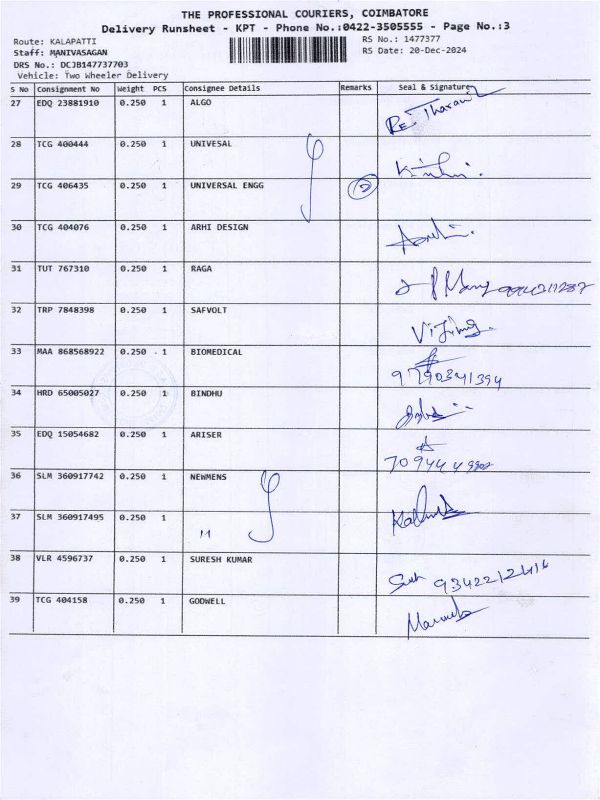 THE PROFESSIONAL COURIERS, COIMBATORE
Delivery Runsheet - KPT - Phone No.:0422-3505555 - Page No.:3
Route: KALAPATTI
RS No.: 1477377
Staff: MANIVASAGAN
RS Date: 20-Dec-2024
DRS No.: DCJB147737703
Vehicle: Two Wheeler Delivery
S No Consignment No Weight PCS Consignee Details Remarks Seal & Signature
27 EDQ 23881910 0.250 1 ALGO
28 TCG 400444 0.250 1 UNIVESAL
29 TCG 406435 0.250 1 UNIVERSAL ENGG 2
30 TCG 404076 0.250 1 ARHI DESIGN
31 TUT 767310 0.250 1 RAGA
32 TRP 7848398 0.250 1 SAFVOLT
33 MAA 868568922 0.250 1 BIOMEDICAL
9790341394
34 HRD 65005027 0.250 1 BINDHU
35 EDQ 15054682 0.250 1 ARISER
36 SLM 360917742 0.250 1 NEWMENS
37 SLM 360917495 0.250 1 "
38 VLR 4596737 0.250 1 SURESH KUMAR
39 TCG 404158 0.250 1 GODWELL